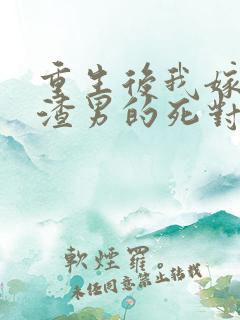 重生後我嫁
渣男的死對
軟煙羅。
未经同意禁止转载